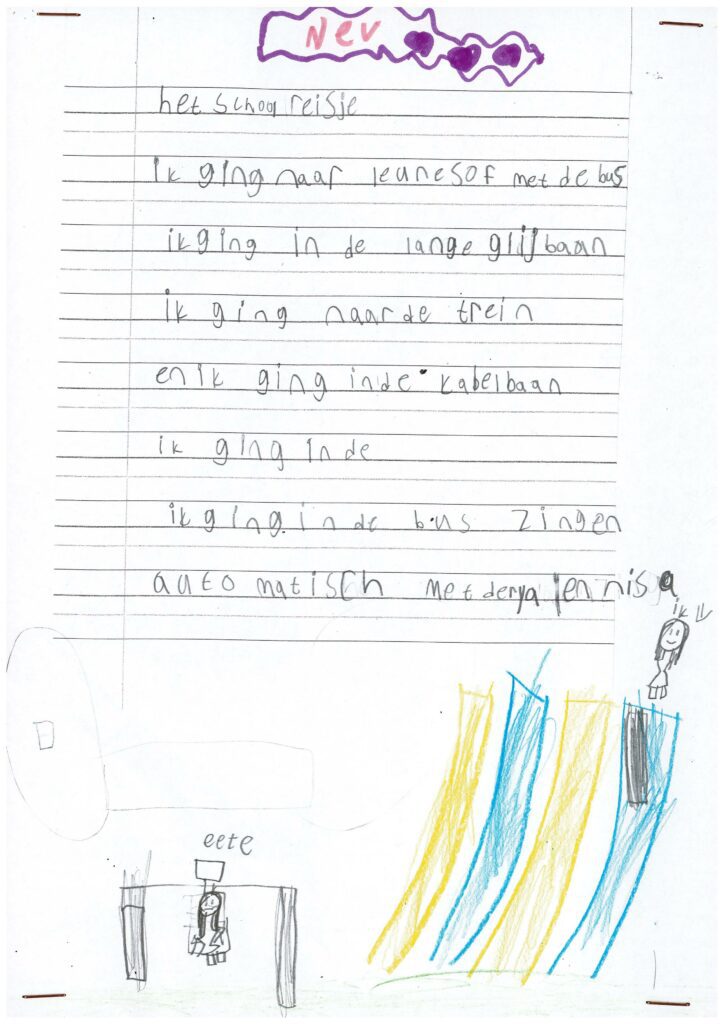 Nev
het schoolreisje
ik ging naar jeunesof met de bus
ik ging in de lange glijbaan
ik ging naar de trein
en ik ging in de kabelbaan
ik ging in de
ik ging in de bus zingen
automatisch met derya en nisa
ik
eete